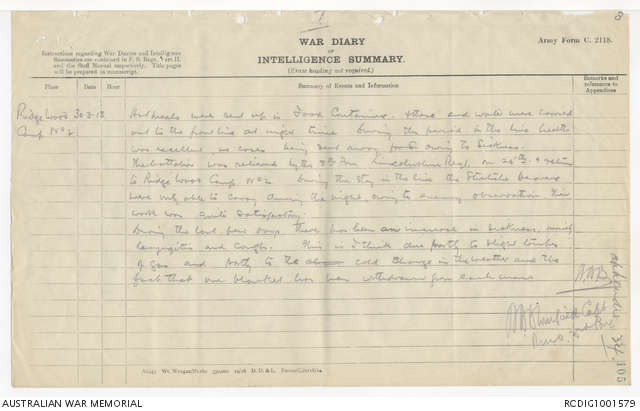 WAR DIARY
OR
INTELLIGENCE SUMMARY.
(Erase heading not required.)
Army Form C. 2118.
Instructions regarding War Diaries and Intelligence
Summaries are contained in F. S. Regs., Part II.
and the Staff Manual respectively. Title pages
will be prepared in manuscript.
Place Date Hour Summary of Events and Information Remarks and references to Appendices
Ridge Wood 30-3-18 Hot meals were sent up in Food Containers. and water were carried
Camp No 2 out to the front line at night time. During the period in the line health
was excellent, no cases being sent away owing to Sickness.
The battalion was relieved by the Lincolnshire Regt. on
to Ridge Wood Camp No 2. During the stay in the line the Stretcher bearers
were only able to carry during the night owing to enemy observation. Their
work was quite satisfactory.
During the last few days, there has been an increase in Sickness, mainly
laryngitis and Coughs. This is I think due partly to slight touches
of gas and partly to the cold change in the weather and the
fact that one blanket has been withdrawn from each man
Capt
appendix 34. 105
AUSTRALIAN WAR MEMORIAL
RCDIG1001579